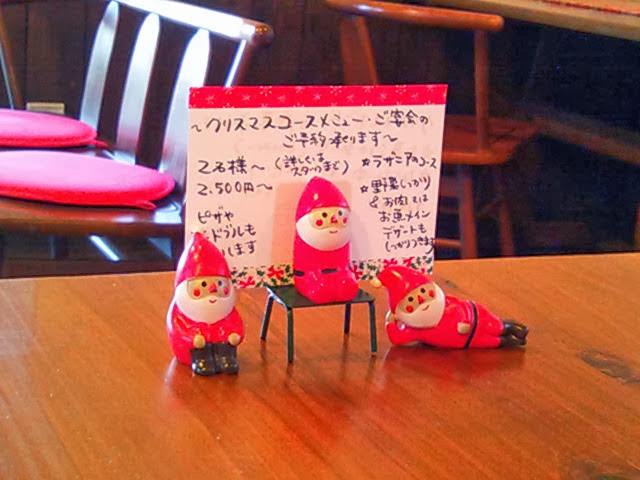 ～クリスマスコースメニュー・ご宴会の
ご予約承ります～
2名様～（詳しくは
スタッフまで）
2,500円～
ピザや
ドブルも
します
☆ラザニアのコース
☆野菜しっかり
&お肉又は
お魚メイン
デザートも
しっかりつきます